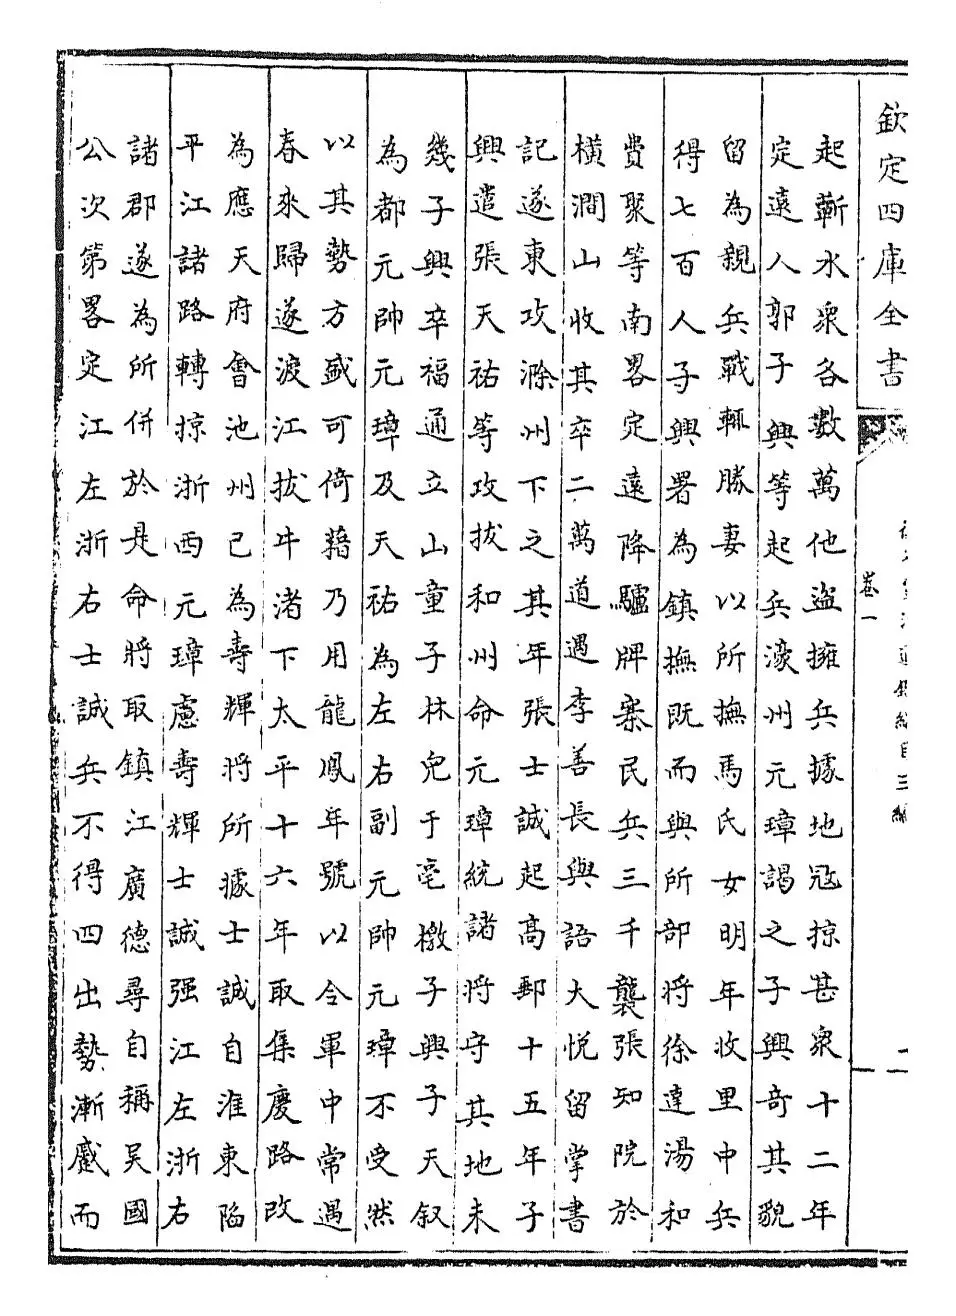 欽定四庫全書
卷一
起蘄水衆各數萬他盜擁兵據地冦掠甚衆十二年
定遠人郭子興等起兵濠州元璋謁之子興奇其貌
留為親兵戰輒勝妻以所撫馬氏女明年收里中兵
得七百人子興署為鎮撫既而與所部將徐達湯和
費聚等南畧定遠降驢牌寨民兵三千襲張知院於
橫澗山收其卒二萬道遇李善長與語大悅留掌書
記遂東攻滁州下之其年張士誠起高郵十五年子
興遣張天祐等攻拔和州命元璋統諸將守其地未
幾子興卒福通立山童子林兒于亳檄子興子天叙
為都元帥元璋及天祐為左右副元帥元璋不受然
以其勢方盛可倚藉乃用龍鳳年號以令軍中常遇
春來歸遂渡江拔牛渚下太平十六年取集慶路改
為應天府會池州已為壽輝將所據士誠自淮東陷
平江諸路轉掠浙西元璋慮壽輝士誠强江左浙右
諸郡遂為所併於是命將取鎮江廣德尋自稱吳國
公次第畧定江左浙右士誠兵不得四出勢漸蹙而